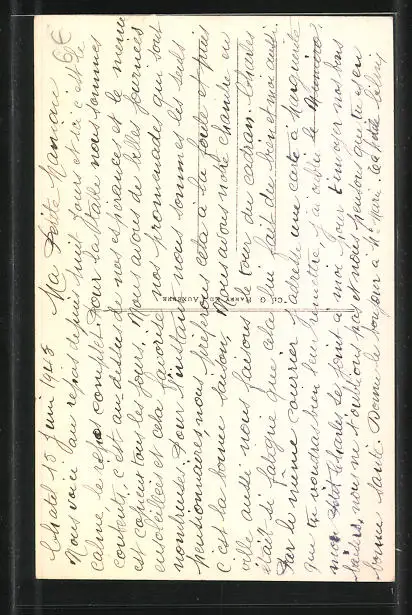 Chatel 15 Juin 1928 Ma Petite Maman
Nous voici au repos depuis huit jours et ici c'est le
calme le repos complet. Pour la table nous sommes
contents, c'est au-dessus de nos espérances et le menu
est copieux tous les jours. Nous avons de belles journées
ensoleillées et cela favorise nos promenades qui sont
nombreuses. Pour l'instant nous sommes les seuls
pensionnaires, nous préférons cela à la foule et puis
c'est la bonne saison. Nous avons notre chambre en
ville aussi nous faisons le tour du cadran. Charles
était si fatigué que cela lui fait du bien et moi aussi.
Par le même courrier j'adresse une carte à Marguerite
que tu voudras bien leur remettre, j'ai oublié le numéro.
mon Charles se joint à moi pour t'envoyer nos bons
baisers, nous ne t'oublions pas et nous pensons que tu es en
bonne santé. Donne le bonjour à Mme ta petite
Cl. G. HARRY ED. AUXERRE